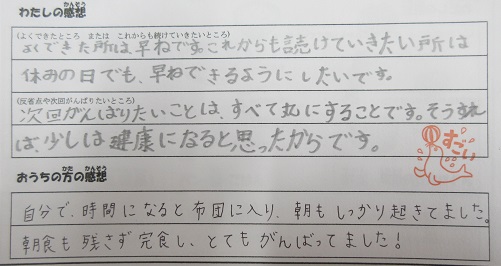 わたしの感想
(よくできたところ または これからも続けていきたいところ)
よくできた所は早ねです。これからも読けていきたい所は
休みの日でも、早ねできるようにしたいです。
(反省点や次回がんばりたいところ)
次回がんばりたいことは、すべて丸にすることです。そうすれ
ば、少しは健康になると思ったからです。
すごい
おうちの方の感想
自分で、時間になると布団に入り、朝もしっかり起きてました。
朝食も残さず完食し、とてもがんばってました!